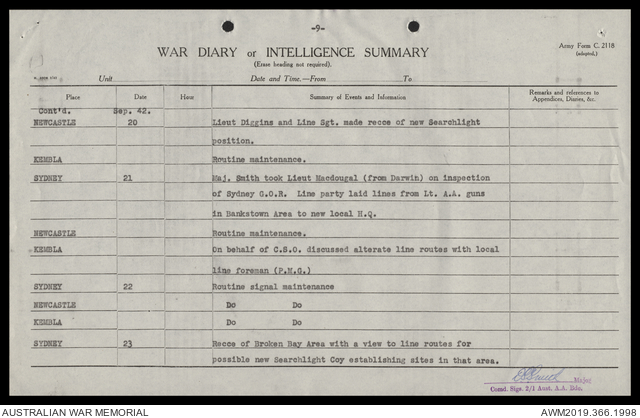 -9-
Army Form C. 2118
(adapted.)
WAR DIARY or INTELLIGENCE SUMMARY
(Erase heading not required).
Unit Date and Time.—From To
Place Date Hour Summary of Events and Information Remarks and references to Appendices, Diaries, &c.
Cont'd. Sep. 42.
NEWCASTLE 20 Lieut Diggins and Line Sgt. made recce of new Searchlight
position.
KEMBLA Routine maintenance.
SYDNEY 21 Maj. Smith took Lieut Macdougal (from Darwin) on inspection
of Sydney G.O.R. Line party laid lines from Lt. A.A. guns
in Bankstown Area to new local H.Q.
NEWCASTLE Routine maintenance.
KEMBLA On behalf of C.S.O. discussed alterate line routes with local
line foreman (P.M.G.)
SYDNEY 22 Routine signal maintenance
NEWCASTLE Do Do
KEMBLA Do Do
SYDNEY 23 Recce of Broken Bay Area with a view to line routes for
possible new Searchlight Coy establishing sites in that area.
Major
Comd. Sigs. 2/1 Aust. A.A. Bde.
AUSTRALIAN WAR MEMORIAL AWM2019.366.1998